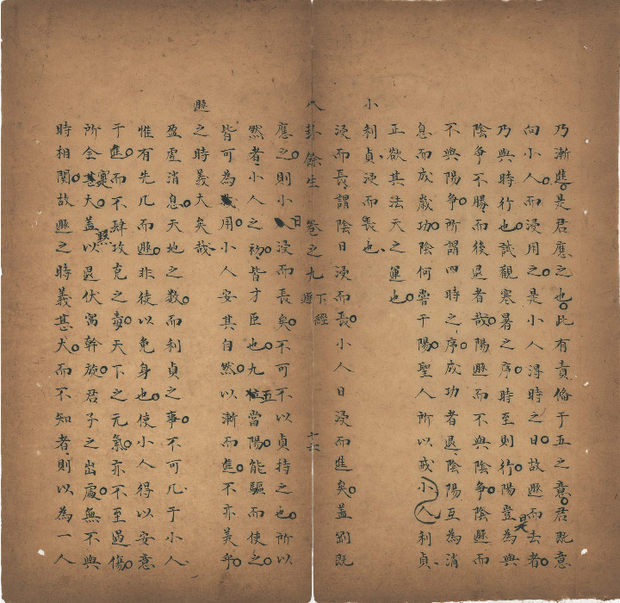 乃漸進是君應之也此有責俻于五之意君既意
向小人而浸用之是小人淂時之日故遯而去者
乃與時行也試觀寒暑之序時至則行陽豈為與
陰爭不勝而後退者哉陽遯而不與陰爭陰遯而
不與陽爭所謂四時之序成功者退陰陽互為消
息而成歲功陰何甞干陽聖人所以戒小人利貞
正欲其法天之運也
小利貞浸而長也
浸而長謂陰日浸而長小人日浸而進矣蓋剛既
八卦餘生 卷之九 下經 十六
應之則小日浸而長矣不可不以貞持之也所以
然者小人之初皆才臣也九五當陽能驅而使之
皆可為用小人安其自然以漸而進不亦美乎
遯之時義大矣哉
盈虛消息天地之數而利貞之事不可几于小人
惟有先几而遯非徒以免身也使小人得以安意
于進而不肆攻克之責天下之元氣亦不至過傷
所全甚大蓋以退伏寓幹旋君子之出處無不與
時相関故遯之時義甚大而不知者則以為一人